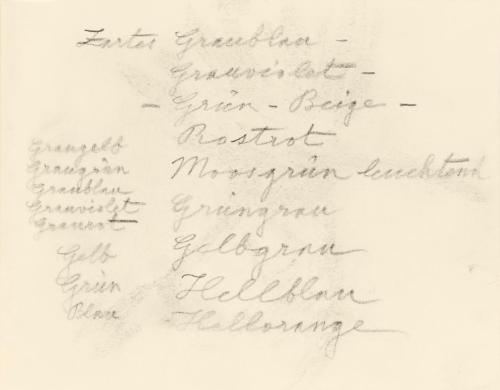 Zartes Graublau –
Grauviolet –
– Grün – Beige –
Rostrot
Moosgrün leuchtend
Grüngrau
Gelbgrau
Hellblau
Hellorange
Graugelb
Graugrün
Graublau
Grauviolet
Graurot
Gelb
Grün
Blau